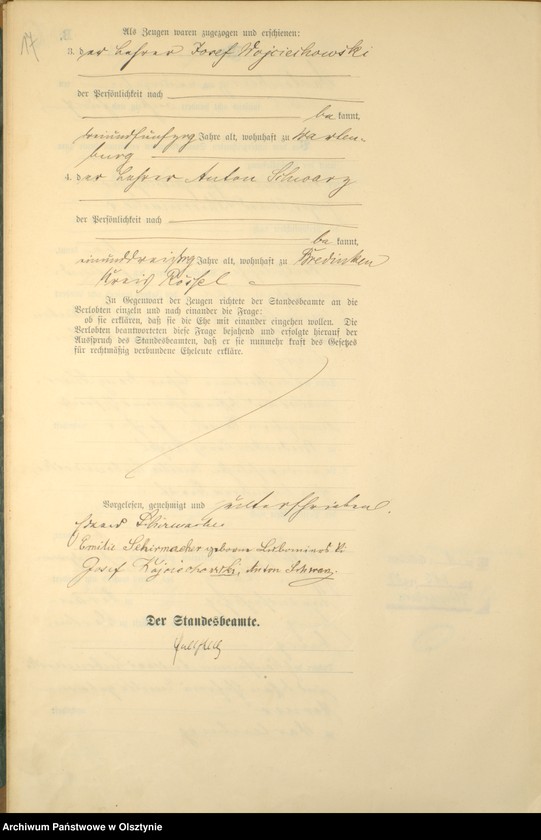 17
Als Zeugen waren zugezogen und erschienen:
3. der Lehrer Josef Wojciechowski
der Persönlichkeit nach
be kannt,
Jahre alt, wohnhaft zu Warten-
burg
4. der Lehrer Anton Schwarz
der Persönlichkeit nach
be kannt,
einunddreißig Jahre alt, wohnhaft zu Bredinken
Kreis Rössel
In Gegenwart der Zeugen richtete der Standesbeamte an die
Verlobten einzeln und nach einander die Frage:
ob sie erklären, daß sie die Ehe mit einander eingehen wollen. Die
Verlobten beantworteten diese Frage bejahend und erfolgte hierauf der
Ausspruch des Standesbeamten, daß er sie nunmehr kraft des Gesetzes
für rechtmäßig verbundene Eheleute erkläre.
Vorgelesen, genehmigt und unterschrieben.
Schirmacher
Emilie Schirmacher geborene
Josef Wojciechowski, Anton Schwarz.
Der Standesbeamte.
Archiwum Państwowe w Olsztynie